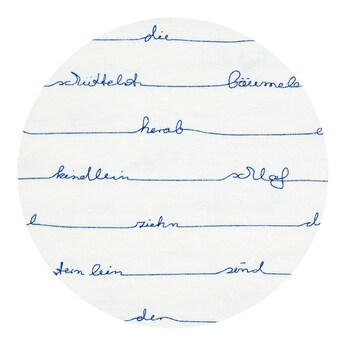 die
schüttelt bäumele
herab e
kindlein schlaf
l ziehn d
ternlein sind
der